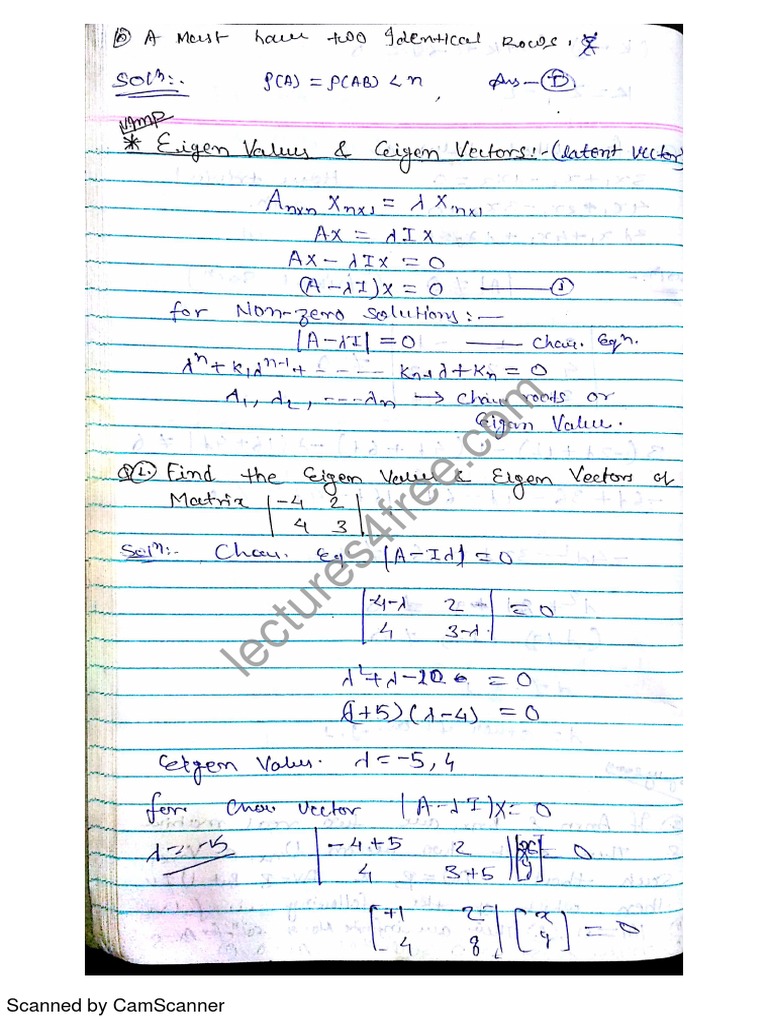 (D) A Must have two Identical Rows.
Solⁿ:- ρ(A) = ρ(AB) < n, Ans - (D)
VImp
* Eigen Values & Eigen Vectors:- (latent vector)
Aₙₓₙ Xₙₓ₁ = λ Xₙₓ₁
AX = λIX
AX - λIX = 0
(A - λI)X = 0 —— ①
for Non-zero solutions:-
|A - λI| = 0 —— Char. Eqⁿ.
λⁿ + k₁λⁿ⁻¹ + - - - - - kₙ₋₁λ + kₙ = 0
λ₁, λ₂, ---- λₙ → Char roots or
Eigen Value.
Q1. Find the Eigen Value & Eigen Vectors of
Matrix |-4 2|
|4 3|
Solⁿ:- Char. Eq |A - Iλ| = 0
|-4-λ 2| = 0
|4 3-λ|
λ² + λ - 20 = 0
(λ+5)(λ-4) = 0
Eigen Value. λ = -5, 4
for Char vector |A - λI)X = 0
λ = -5 |-4+5 2| [x] = 0
|4 3+5| [y]
[+1 2] [x] = 0
[4 8] [y]
lectures4free.com
Scanned by CamScanner